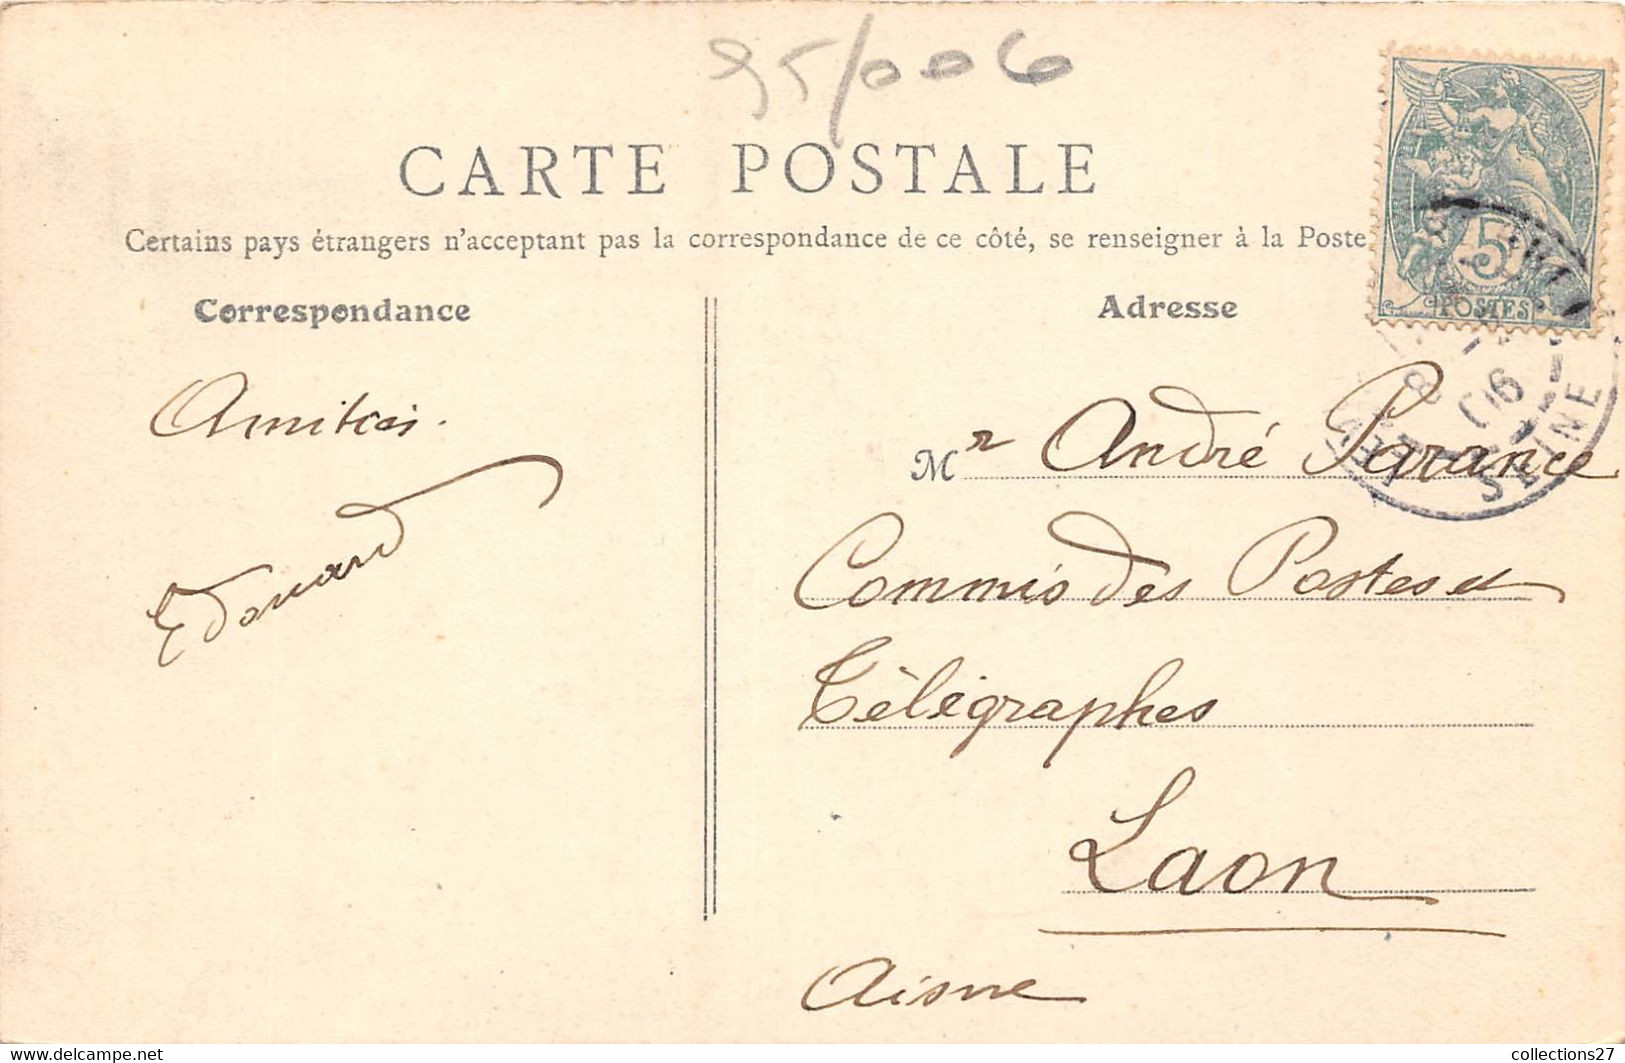 95/006
CARTE POSTALE
Certains pays étrangers n'acceptant pas la correspondance de ce côté, se renseigner à la Poste
Correspondance
Adresse
5
POSTES
06
SEINE
Amitiés.
Edouard
Mr André Parance
Commis des Postes et
Télégraphes
Laon
Aisne
delcampe.net
collections27